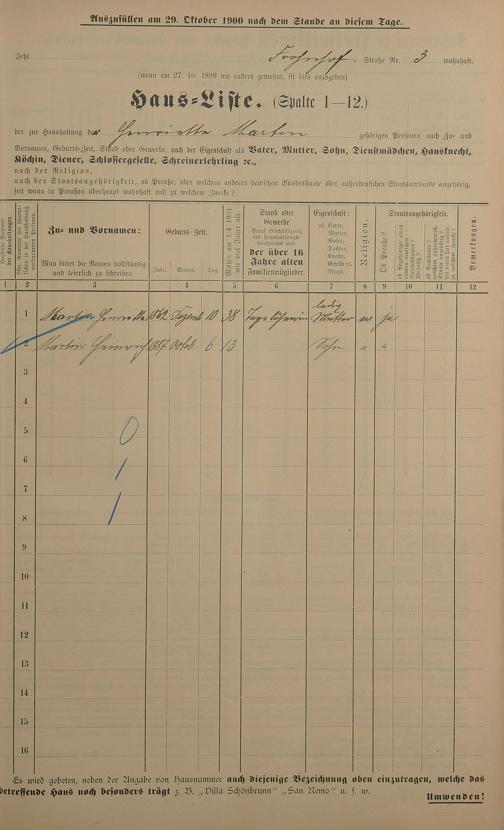 Auszufüllen am 29. Oktober 1900 nach dem Stande an diesem Tage.
Jetzt Frohnhof Straße Nr. 3 wohnhaft.
(wenn am 27. 10. 1899 wo anders gewohnt, ist dies anzugeben)
Haus-Liste. (Spalte 1—12.)
der zur Haushaltung der Henriette Martin gehörigen Personen nach Zu- und
Vornamen, Geburts-Zeit, Stand oder Gewerbe, nach der Eigenschaft als Vater, Mutter, Sohn, Dienstmädchen, Hausknecht,
Köchin, Diener, Schlossergeselle, Schreinerlehrling ꝛc.,
nach der Religion,
nach der Staatsangehörigkeit, ob Preuße, oder welchem anderen deutschen Bundesstaate oder außerdeutschen Staatsverbande angehörig,
seit wann in Preußen überhaupt wohnhaft und zu welchem Zwecke?
Zu- und Vornamen:
Man bittet die Namen vollständig und leserlich zu schreiben.
Geburts-Zeit.
Jahr. Monat. Tag.
Mithin am 1/4 1901 wie viel Jahre alt.
Stand oder Gewerbe
der über 16 Jahre alten Familienmitglieder.
Eigenschaft:
ob Vater, Mutter, Sohn, Tochter, Knecht, Geselle u. Magd.
Religion.
Staatsangehörigkeit.
Ob Preuße?
Bemerkungen.
1 2 3 4 5 6 7 8 9 10 11 12
1 Martin Henriette 1862 Dezemb 10 38 Tagelöhnerin ledig Mutter ev ja
2 Martin Heinrich 1887 Octob 6 13 Sohn " "
3
4
5 0
6 1
7
8 1
9
10
11
12
13
14
15
16
Es wird gebeten, neben der Angabe von Hausnummer auch diejenige Bezeichnung oben einzutragen, welche das
betreffende Haus noch besonders trägt z. B. „Villa Schönbrunn" „San Remo" u. s. w.
Umwenden!